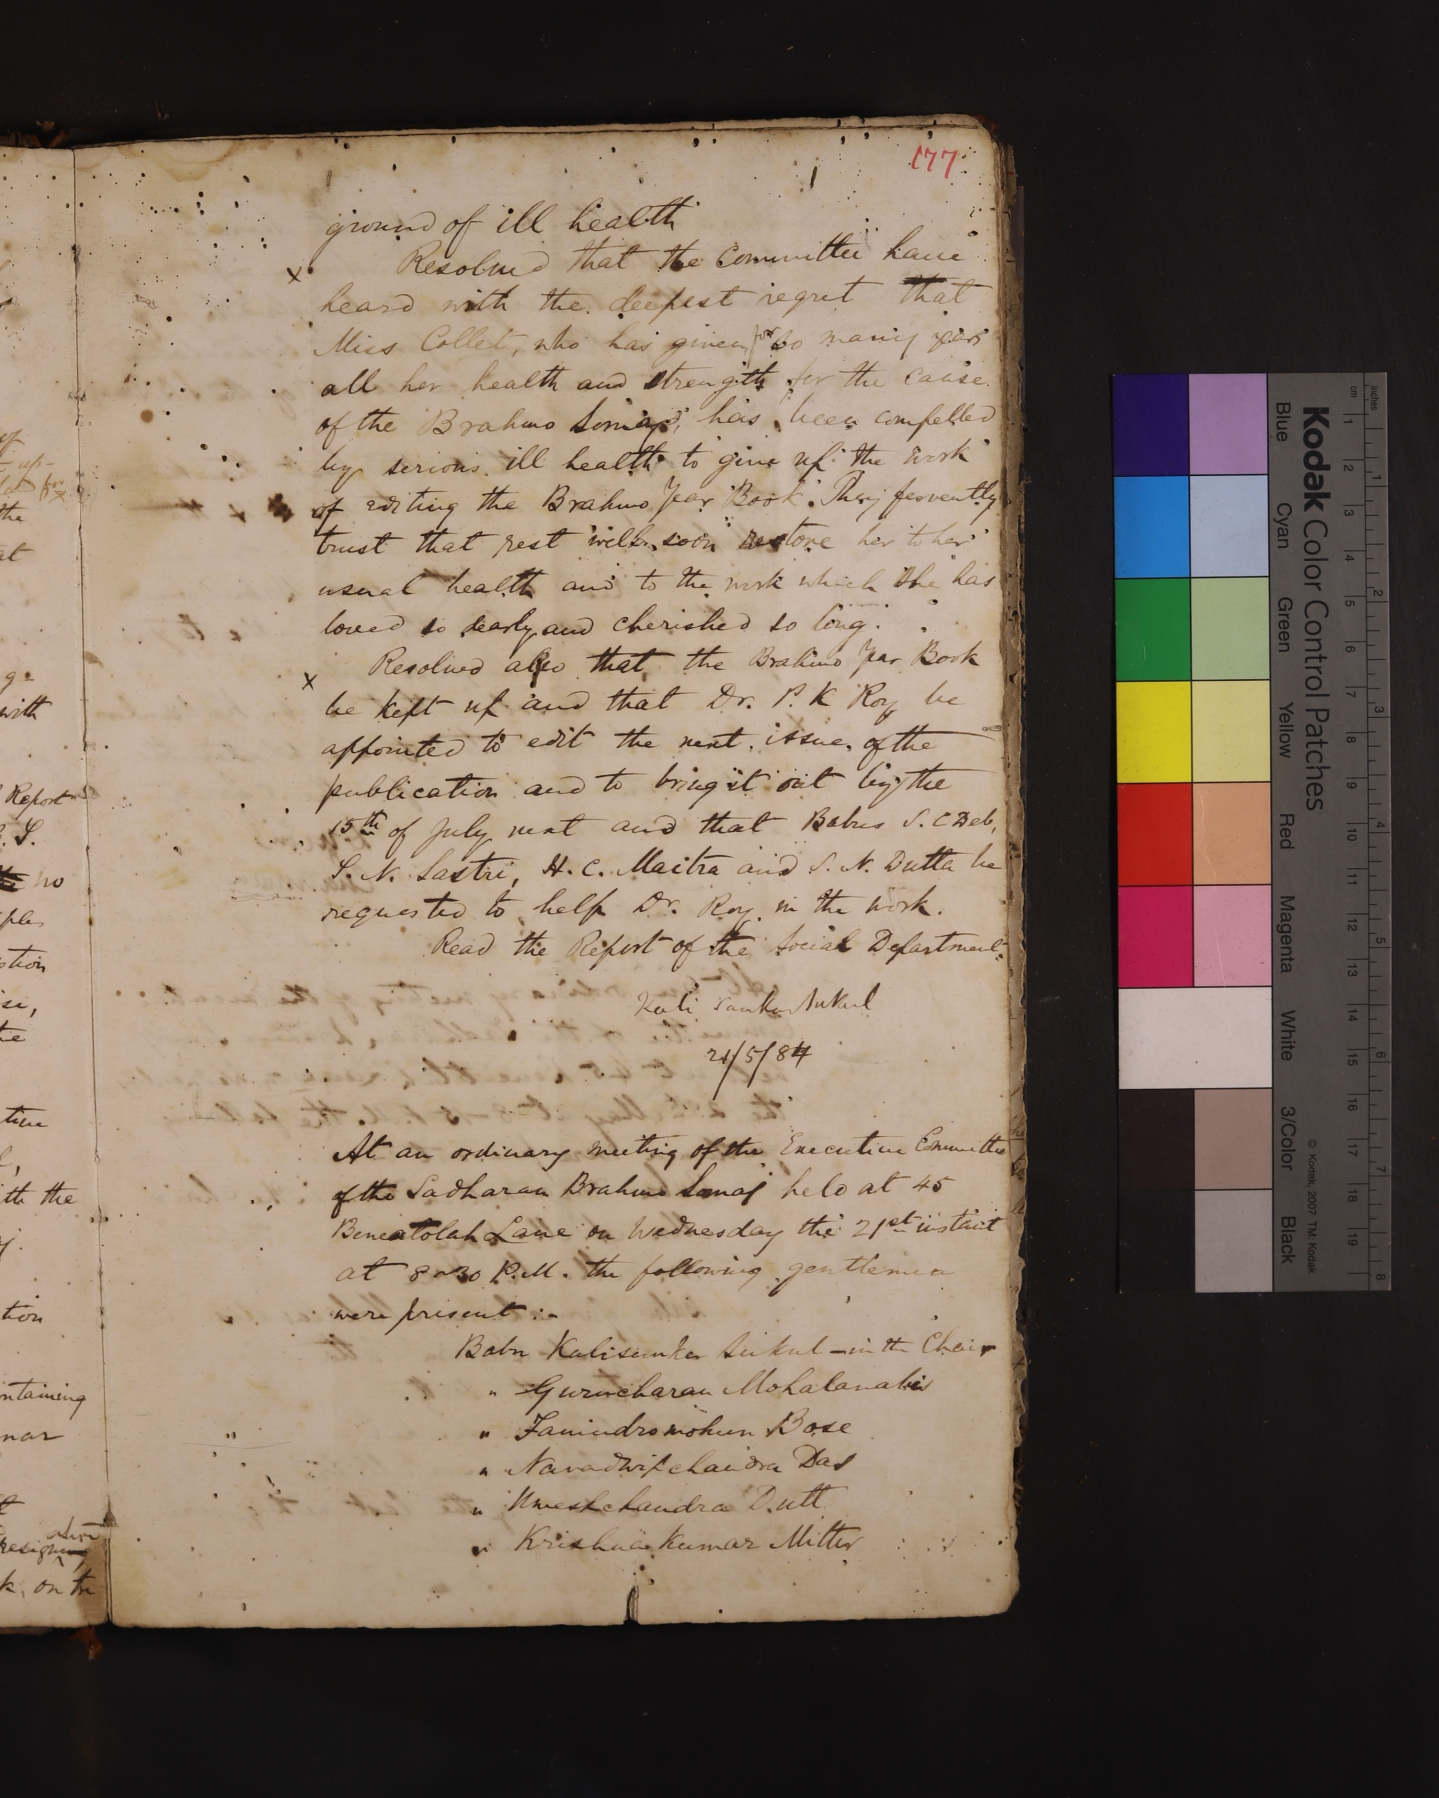 177
ground of ill health
x Resolved that the Committee have
heard with the deepest regret that
Miss Collet, who has given for so many years
all her health and strength for the cause
of the Brahmo Somaj, has been compelled
by serious ill health to give up the work
of editing the Brahmo Year Book. They fervently
trust that rest will soon restore her to her
usual health and to the work which she has
loved so dearly and cherished so long.
x Resolved also that the Brahmo Year Book
be kept up and that Dr. P. K Roy be
appointed to edit the next issue of the
publication and to bring it out by the
15th of July next and that Babus S. C Deb,
S. N. Sastri, H. C. Maitra and S. N. Dutta be
requested to help Dr. Roy in the work.
Read the Report of the Social Department.
Kali Sankar Sukul
21/5/84
At an ordinary meeting of the Executive Committee
of the Sadharan Brahmo Somaj held at 45
Beneatolah Lane on Wednesday the 21st instant
at 8-30 P.M. the following gentlemen
were present :-
Babu Kalisunker Sukul - in the Chair
" Gurucharan Mohalanabis
" Fanindromohun Bose
" Navadwipchandra Das
" Umeshchandra Dutt
" Krishna Kumar Mitter
the
at
with
Report
no
tion
the
th the
tion
ntaining
nar
k on the
Kodak Color Control Patches
Blue Cyan Green Yellow Red Magenta White 3/Color Black
© Kodak, 2007 TM: Kodak
inches 1 2 3 4 5 6 7 8
cm 1 2 3 4 5 6 7 8 9 10 11 12 13 14 15 16 17 18 19